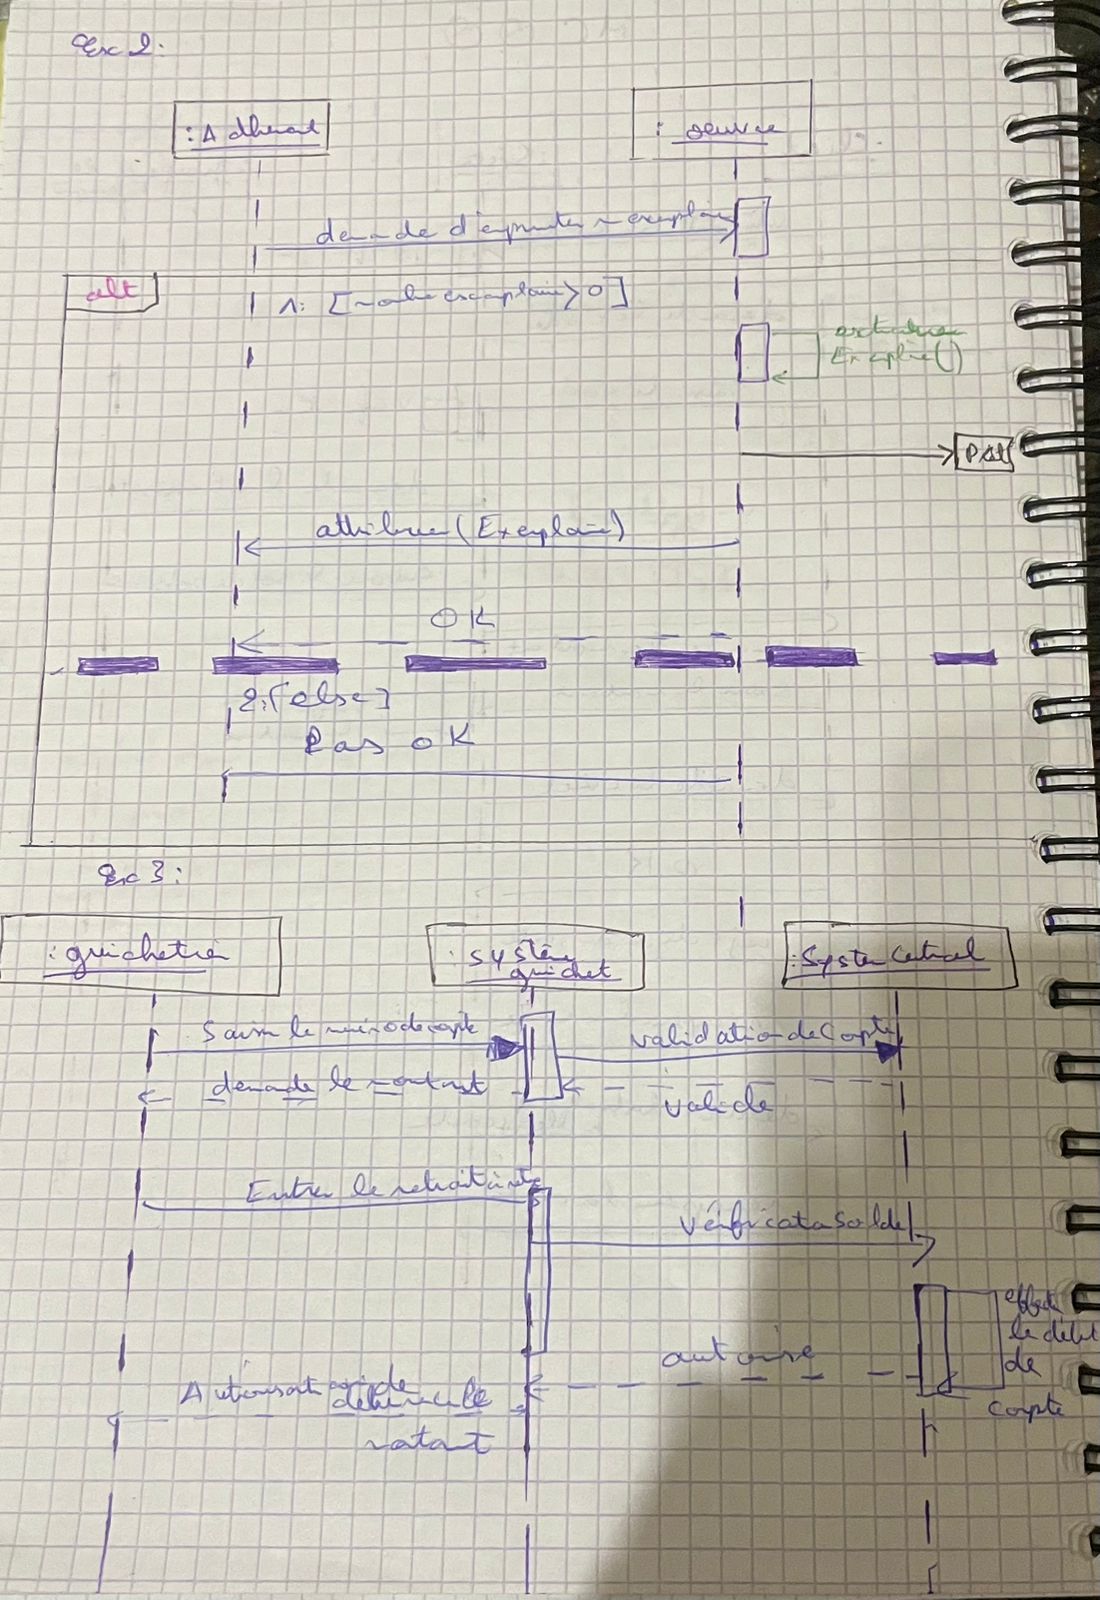 Ex 2:
:Adherent
: oeuvre
demande d'emprunter exemplaire
alt
1: [nombre exemplaire > 0]
Exemplaire()
attribuer (Exemplaire)
OK
2: [else]
Pas OK
Ex 3:
:guichetier
:système
guichet
:System Central
Saisir le numéro de compte
validation de Compte
demande le montant
valide
Entrer le retrait
Vérification Solde
le débit
de
compte
autorise
Autorisation de
montant